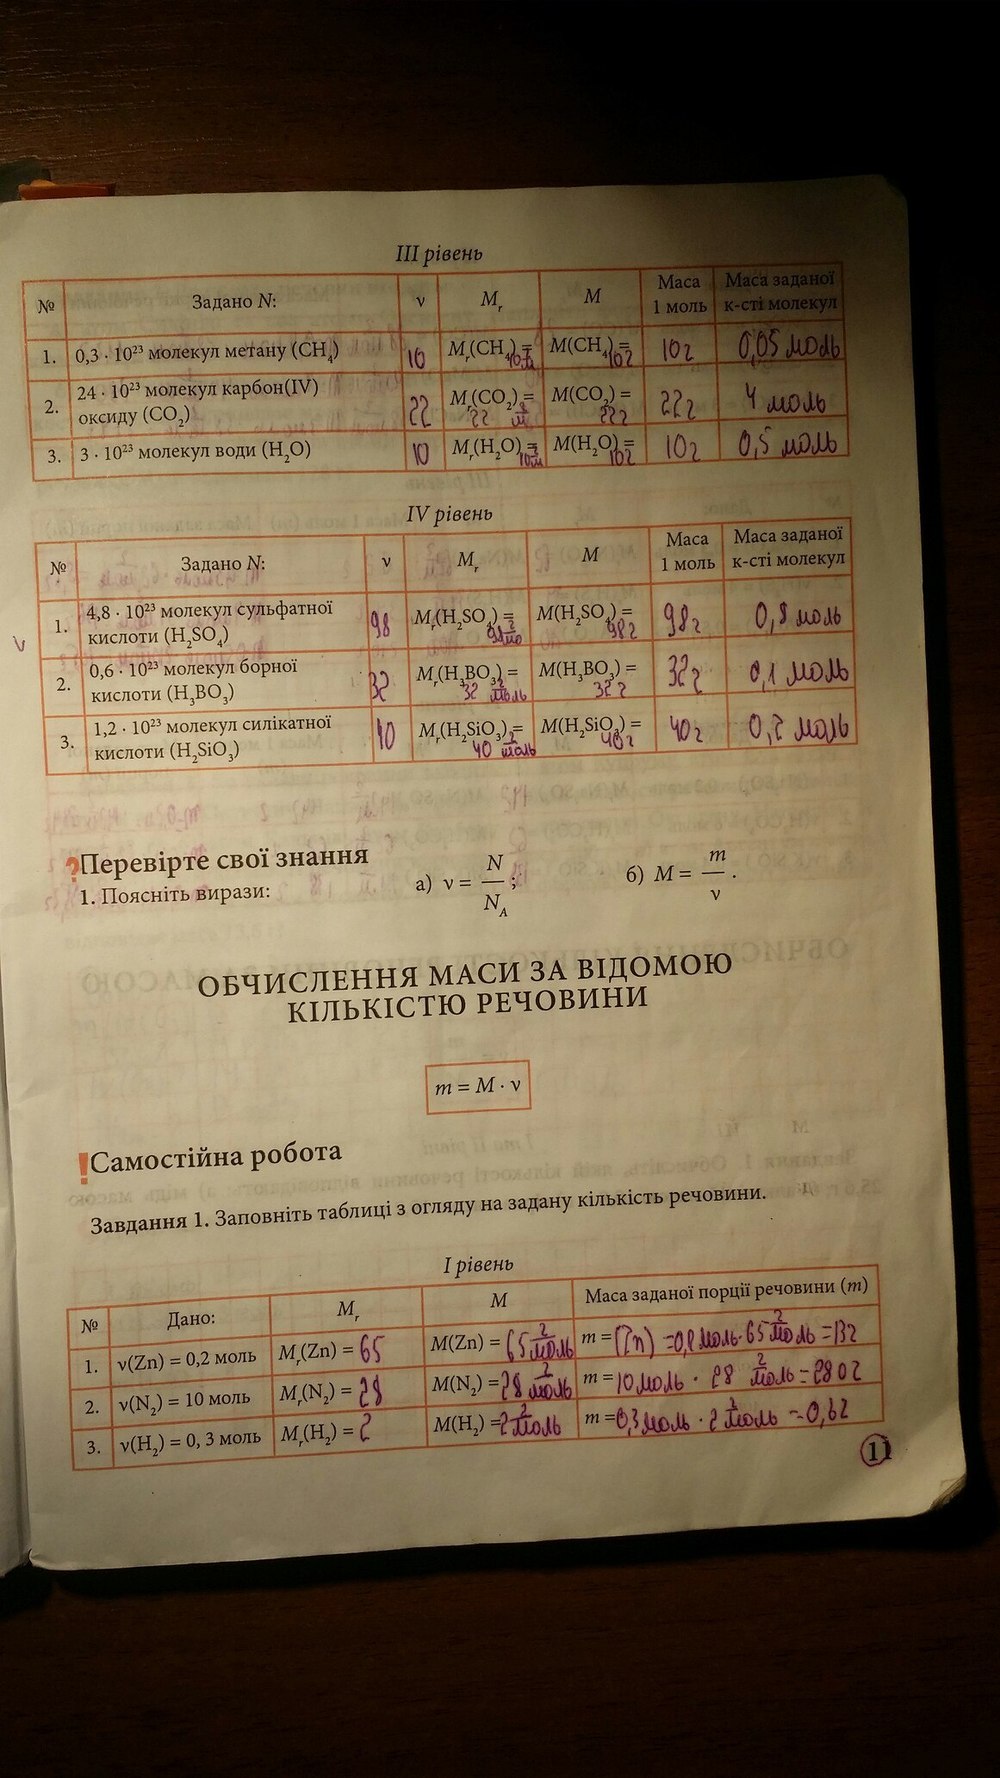 III рівень
№ Задано N: ν Mᵣ M Маса 1 моль Маса заданої к-сті молекул
1. 0,3 · 10²³ молекул метану (CH₄) 10 Mᵣ(CH₄) = 10 M(CH₄) = 10г 10г 0,05 моль
2. 24 · 10²³ молекул карбон(IV) оксиду (CO₂) 22 Mᵣ(CO₂) = 22 M(CO₂) = 22г 22г 4 моль
3. 3 · 10²³ молекул води (H₂O) 10 Mᵣ(H₂O) = 10 M(H₂O) = 10г 10г 0,5 моль
IV рівень
№ Задано N: ν Mᵣ M Маса 1 моль Маса заданої к-сті молекул
1. 4,8 · 10²³ молекул сульфатної кислоти (H₂SO₄) 98 Mᵣ(H₂SO₄) = 98 M(H₂SO₄) = 98г 98г 0,8 моль
2. 0,6 · 10²³ молекул борної кислоти (H₃BO₃) 32 Mᵣ(H₃BO₃) = 32 г/моль M(H₃BO₃) = 32г 32г 0,1 моль
3. 1,2 · 10²³ молекул силікатної кислоти (H₂SiO₃) 40 Mᵣ(H₂SiO₃) = 40 г/моль M(H₂SiO₃) = 40г 40г 0,2 моль
? Перевірте свої знання
1. Поясніть вирази: а) ν = N/N_A ; б) M = m/ν .
ОБЧИСЛЕННЯ МАСИ ЗА ВІДОМОЮ
КІЛЬКІСТЮ РЕЧОВИНИ
m = M · ν
! Самостійна робота
Завдання 1. Заповніть таблиці з огляду на задану кількість речовини.
I рівень
№ Дано: Mᵣ M Маса заданої порції речовини (m)
1. ν(Zn) = 0,2 моль Mᵣ(Zn) = 65 M(Zn) = 65 г/моль m = (Zn) = 0,2 моль · 65 г/моль = 13г
2. ν(N₂) = 10 моль Mᵣ(N₂) = 28 M(N₂) = 28 г/моль m = 10 моль · 28 г/моль = 280г
3. ν(H₂) = 0, 3 моль Mᵣ(H₂) = 2 M(H₂) = 2 г/моль m = 0,3 моль · 2 г/моль = 0,6г
11